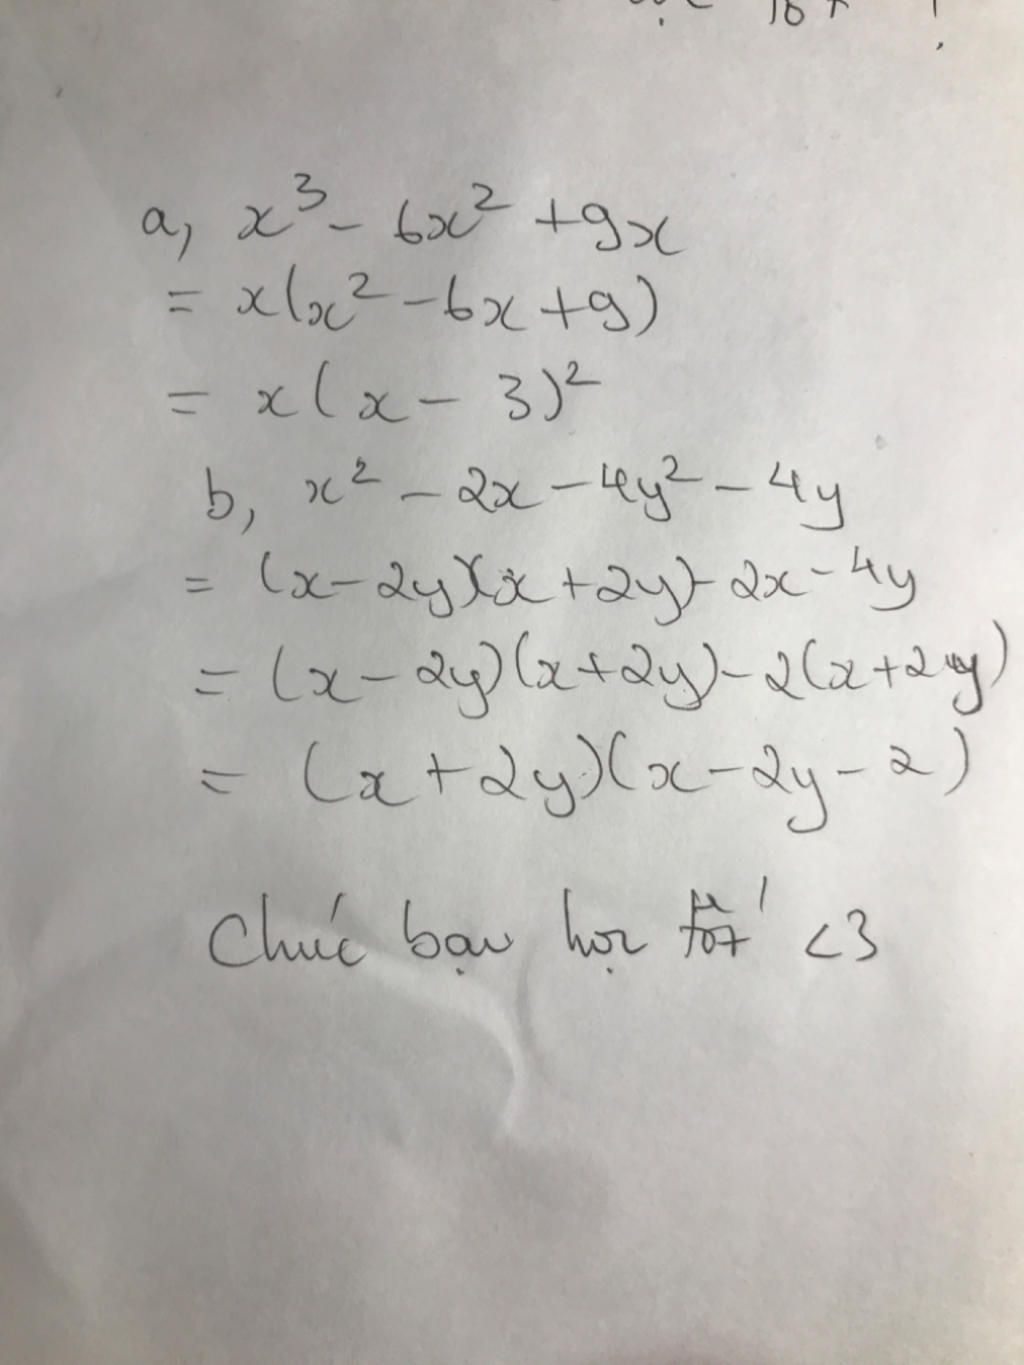 a, x³ - 6x² + 9x
= x(x² - 6x + 9)
= x(x - 3)²
b, x² - 2x - 4y² - 4y
= (x - 2y)(x + 2y) - 2x - 4y
= (x - 2y)(x + 2y) - 2(x + 2y)
= (x + 2y)(x - 2y - 2)
Chúc bạn học tốt <3